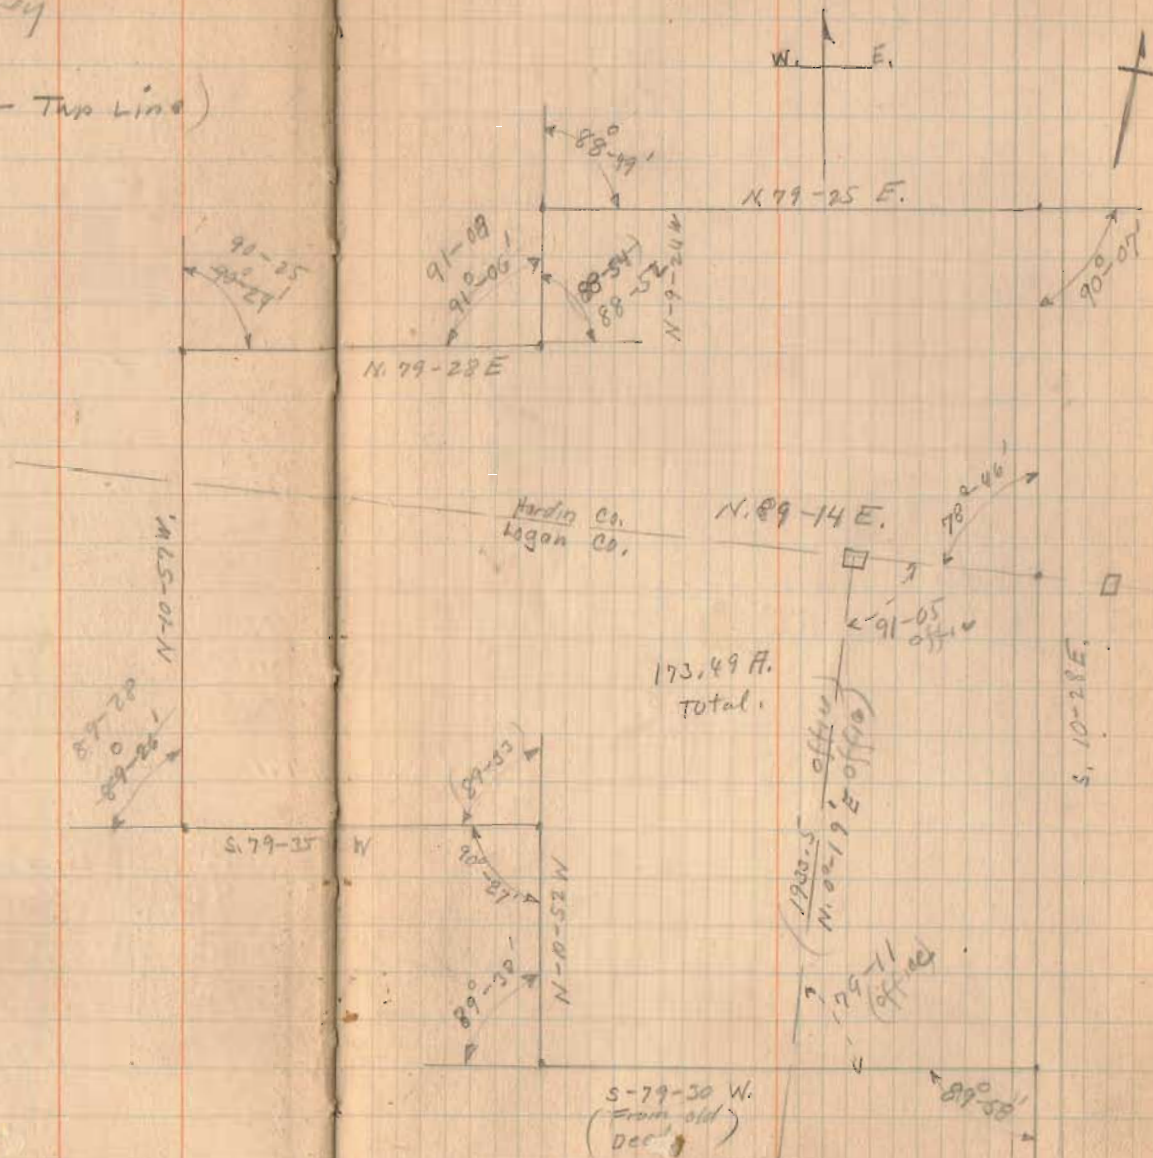 - Twp Line)
W. E.
88°-49'
N. 79-25 E.
90-25
90°-24'
91-08
91°-06'
88-54)
88-52
N-9-24W
90°-07'
N. 79-28 E
Hardin Co.
Logan Co.
N. 89-14 E.
78°-46'
91-05
office
N-10-57W.
173.49 A.
Total.
S. 10-28 E.
89-28
89°-26'
(89-33)
S. 79-35 W
90°-27'
N-10-52 W
89°-38'
(1933.5 office
N. 0°-19' E office)
?
79-11
(office)
S-79-30 W.
(From old
Dec'
89°-58'